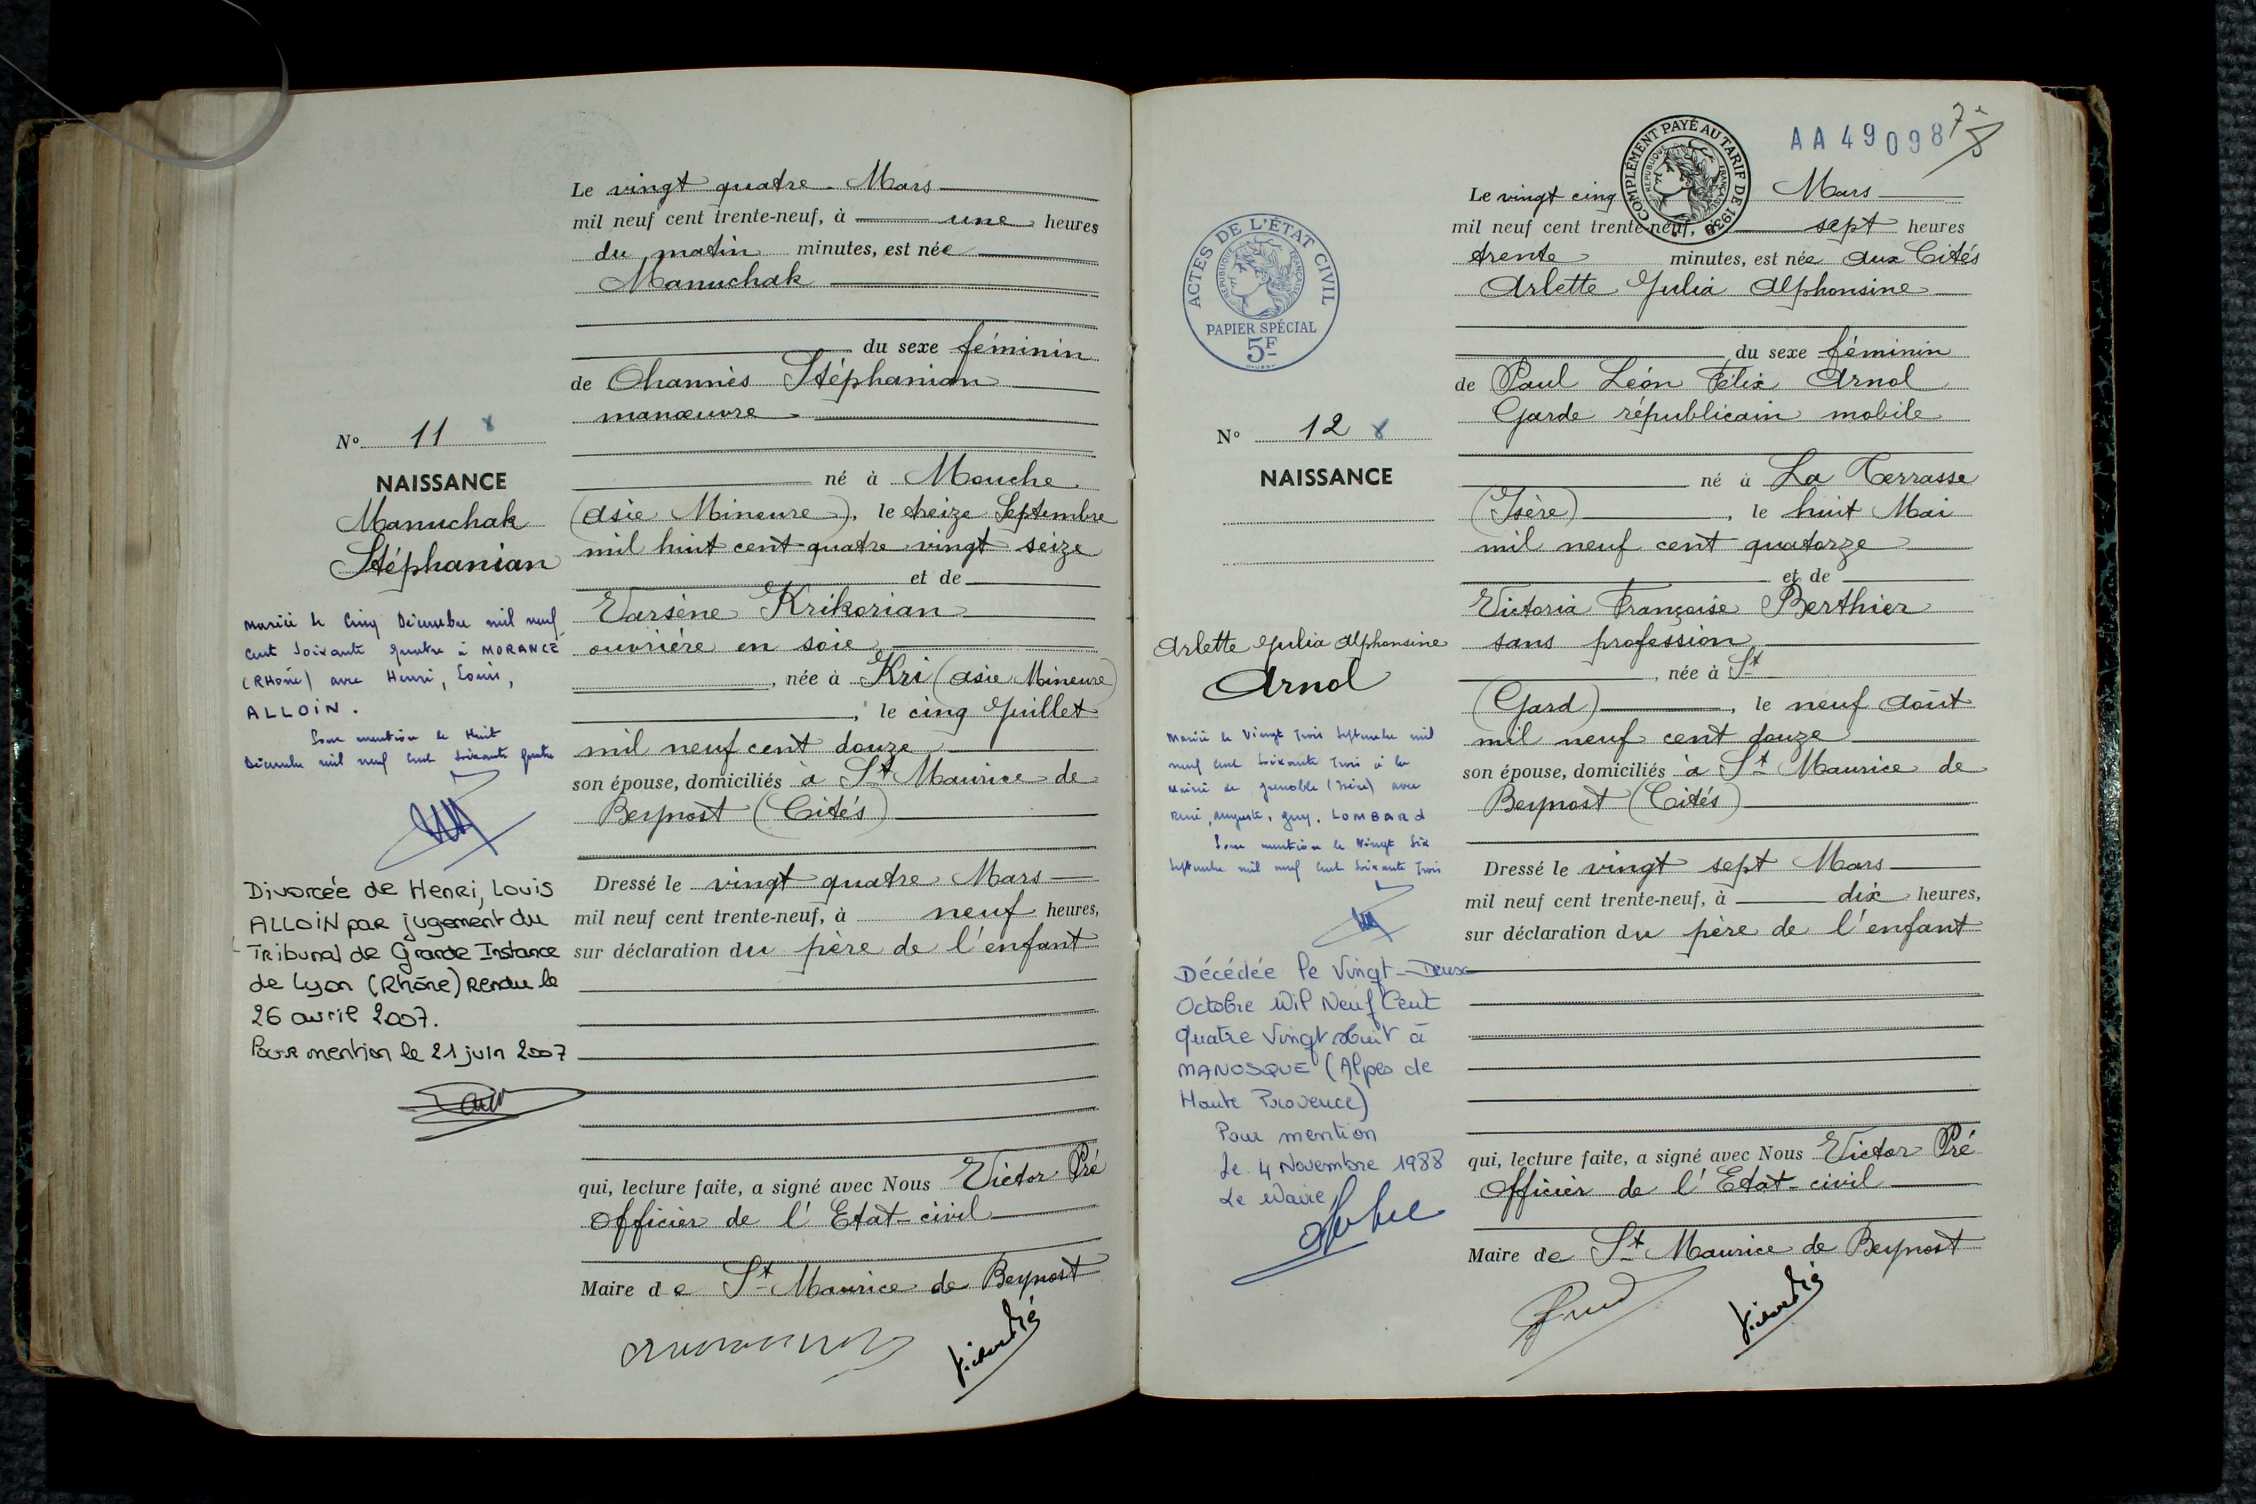 Le vingt quatre Mars
mil neuf cent trente-neuf, à une heures
du matin minutes, est née
Manuchak
du sexe féminin
de Ohannès Stéphanian
manœuvre
né à Mouche
(Asie Mineure), le treize Septembre
mil huit cent quatre vingt seize
et de
Varsène Krikorian
ouvrière en soie
, née à Kri (Asie Mineure)
, le cinq Juillet
mil neuf cent douze
son épouse, domiciliés à St Maurice de
Beynost (Cités)
Dressé le vingt quatre Mars
mil neuf cent trente-neuf, à neuf heures,
sur déclaration du père de l'enfant
qui, lecture faite, a signé avec Nous Victor Pré
Officier de l'Etat-civil
Maire de St Maurice de Beynost
N° 11
NAISSANCE
Manuchak
Stéphanian
Mariée le Cinq Décembre mil neuf
cent soixante quatre à MORANCÉ
(RHône) avec Henri, Louis,
ALLOIN.
Pour mention le Huit
Décembre mil neuf cent soixante quatre
Divorcée de Henri, Louis
ALLOIN par jugement du
Tribunal de Grande Instance
de Lyon (Rhône) rendu le
26 avril 2007.
Pour mention le 21 juin 2007
AA 49098
COMPLÉMENT PAYÉ AU TARIF DE 1938
RÉPUBLIQUE FRANÇAISE
Le vingt cinq Mars
mil neuf cent trente-neuf, sept heures
trente minutes, est née aux Cités
Arlette Julia Alphonsine
du sexe féminin
de Paul Léon Félix Arnol
Garde républicain mobile
né à La Terrasse
(Isère), le huit Mai
mil neuf cent quatorze
et de
Victoria Françoise Berthier
sans profession
, née à St
(Gard), le neuf Août
mil neuf cent douze
son épouse, domiciliés à St Maurice de
Beynost (Cités)
Dressé le vingt sept Mars
mil neuf cent trente-neuf, à dix heures,
sur déclaration du père de l'enfant
qui, lecture faite, a signé avec Nous Victor Pré
Officier de l'Etat-civil
Maire de St Maurice de Beynost
ACTES DE L'ÉTAT CIVIL
RÉPUBLIQUE FRANÇAISE
PAPIER SPÉCIAL
5F
N° 12
NAISSANCE
Arlette Julia Alphonsine
Arnol
Mariée le Vingt Trois Septembre mil
neuf cent soixante Trois à la
Mairie de Grenoble (Isère) avec
René, Auguste, Guy, LOMBARd
Pour mention le Vingt Six
Septembre mil neuf cent soixante Trois
Décédée le Vingt-Deux
Octobre Mil Neuf Cent
Quatre Vingt Huit à
MANOSQUE (Alpes de
Haute Provence)
Pour mention
Le 4 Novembre 1988
Le Maire